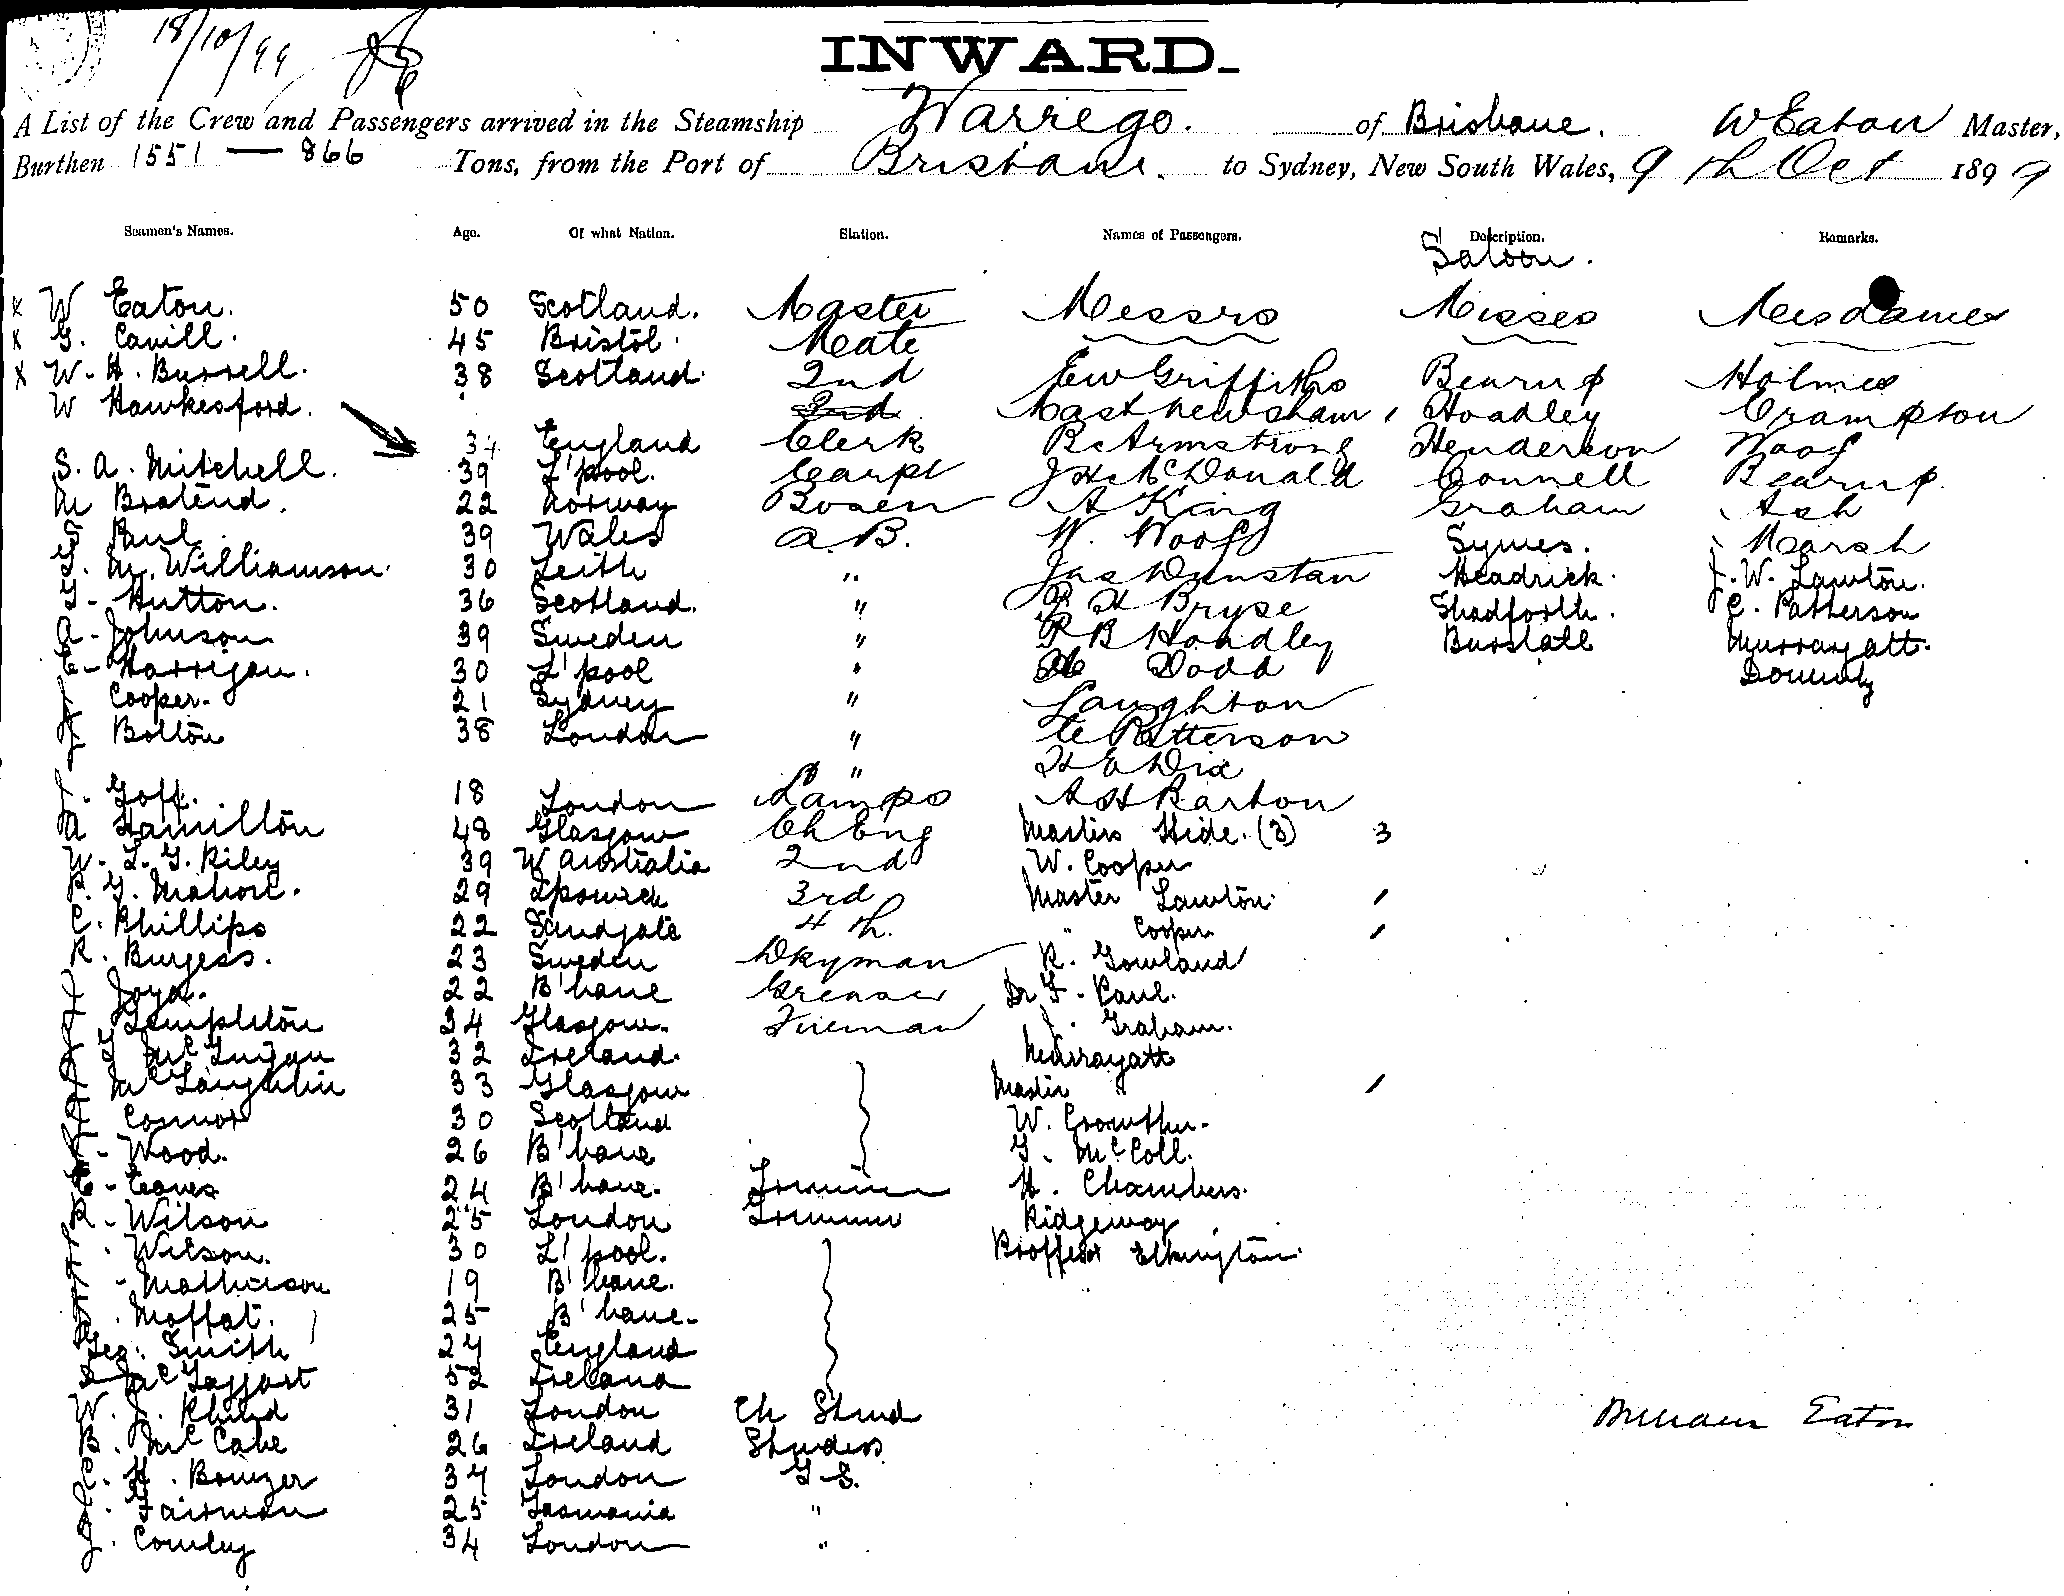 18/10/99
INWARD.
A List of the Crew and Passengers arrived in the Steamship Warrego. of Brisbane. W Eaton Master,
Burthen 1551 — 866 Tons, from the Port of Brisbane. to Sydney, New South Wales, 9th Oct 1899
Seamen's Names. Age. Of what Nation. Station. Names of Passengers. Description. Remarks.
Saloon.
x W Eaton. 50 Scotland. Master Messrs Misses Mesdames
x G. Cavill. 45 Bristol. Mate
x W. H. Burrell. 38 Scotland. 2nd E W Griffiths Bearup Holmes
W Hawkesford. 2nd Mast Newsham 1 Hoadley Crampton
34 England Clerk R C Armstrong Henderson Woof
S. A. Mitchell. 39 L'pool. Carpt J H McDonald Connell Bearup
M Bratend. 22 Norway Bosen A King Graham Ash
Paul 39 Wales A.B. W. Woof Symes. Marsh
G. M. Williamson. 30 Leith " Jas Dunstan Headrick. J. W. Lawton.
G. Hutton. 36 Scotland. " H Bryse Shadforth. C. Patterson
A. Johnson 39 Sweden " R B Hoadley Burstall Murrayatt.
C. Harrigan. 30 L'pool " Dodd
J Cooper. 21 Sydney " Laughton
J Bolton 38 London " C Patterson
" H E Dix
J. Goff. 18 London Lamps A H Barton
A Hamilton 48 Glasgow Ch Eng Masters Hide. (3) 3
W. L. G. Riley 39 W Australia 2nd W. Cooper
P. G. Mahon. 29 Ipswich 3rd Master Lawton 1
C. Phillips 22 Sandgate 4th. " Cooper 1
R. Burgess. 23 Sweden Dkyman R. Gowland
J 22 B'bane Greaser Dr F. Paul.
J Templeton 34 Glasgow. Fireman J. Graham.
32 Ireland. Murrayatt
J McLaughlin 33 Glasgow Master 1
J Connor 30 Scotland W. Crowther.
J. Wood. 26 B'bane G. McColl.
C. Eaves 24 B'bane. Trimmer H. Chambers.
R. Wilson 25 London Trimmer Ridgeway
Wilson. 30 L'pool. Proffesor Elkington
Matherson 19 B'bane.
Moffat. 25 B'bane.
Geo. Smith 24 England
McTaggart 52 Ireland
W. J. 31 London Ch Stwd
B. McCabe 26 Ireland Stwdess
C. H. Bowzer 34 London G.S.
J. Fairman 25 Tasmania "
J. Comley 34 London "
William Eaton